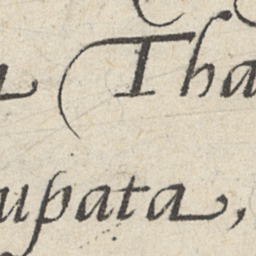 a Tha
upata,